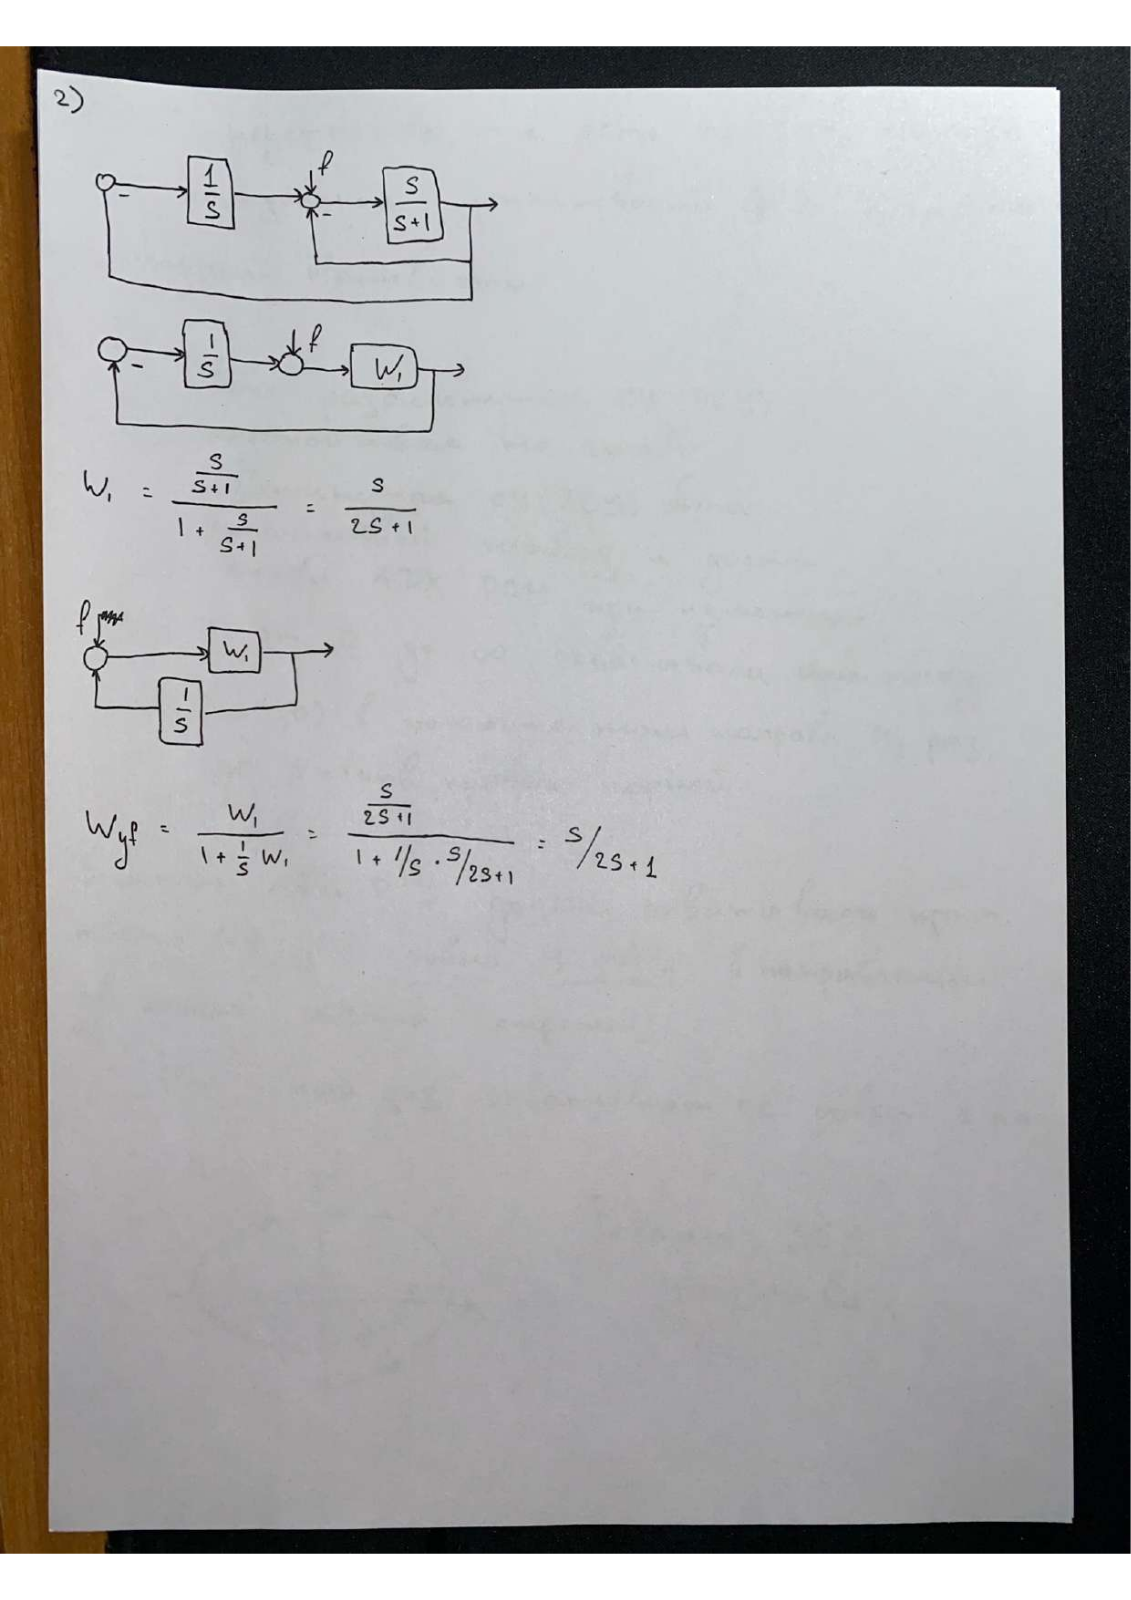 2)
f
1/s - s/(s+1)
-
f
1/s W₁
-
W₁ = (s/(s+1)) / (1 + s/(s+1)) = s/(2s+1)
f
W₁
1/s
W_yf = W₁ / (1 + 1/s W₁) = (s/(2s+1)) / (1 + 1/s · s/2s+1) = s/2s+1